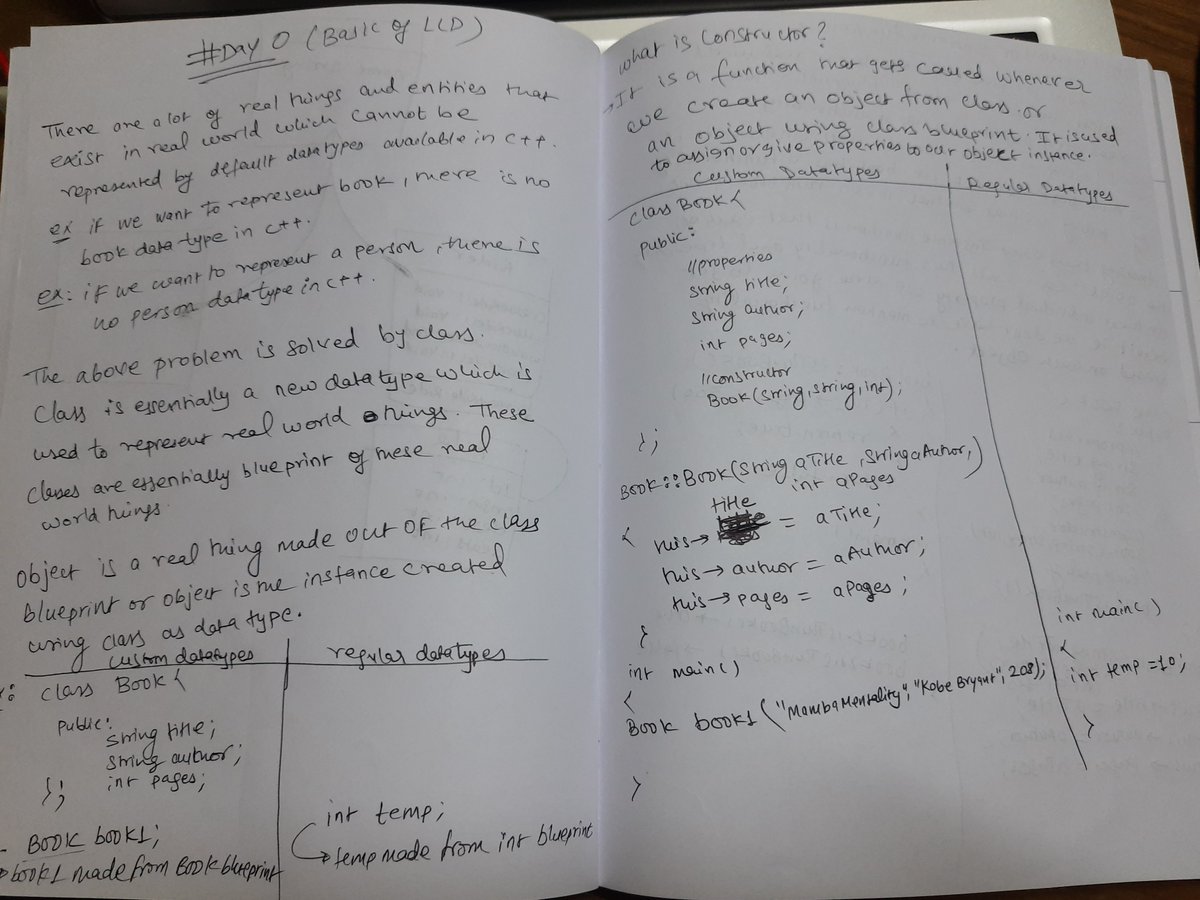 #Day 0 (Basic of LLD)
There are a lot of real things and entities that
exist in real world which cannot be
represented by default datatypes available in C++.
ex if we want to represent book, there is no
book data type in C++.
ex: if we want to represent a person, there is
no person data type in C++.
The above problem is solved by class.
Class is essentially a new datatype which is
used to represent real world things. These
classes are essentially blueprint of these real
world things.
Object is a real thing made out of the class
blueprint or object is the instance created
using class as data type.
custom datatypes
regular datatypes
: class Book {
public:
string title;
string author;
int pages;
};
- BOOK book1;
book1 made from BOOK blueprint
int temp;
temp made from int blueprint
What is constructor?
→ It is a function that gets called whenever
we create an object from class. or
an object using class blueprint. It is used
to assign or give properties to our object instance.
Custom Datatypes
Regular Datatypes
class BOOK {
public:
//properties
string title;
string author;
int pages;
//constructor
Book(string, string, int);
};
BOOK::BOOK(string aTitle, string aAuthor,
int aPages)
title
{ this→ = aTitle;
this→author = aAuthor;
this→pages = aPages;
}
int main()
{
BOOK book1("MambaMentality", "Kobe Bryant", 208);
}
int main()
{
int temp = 10;
}